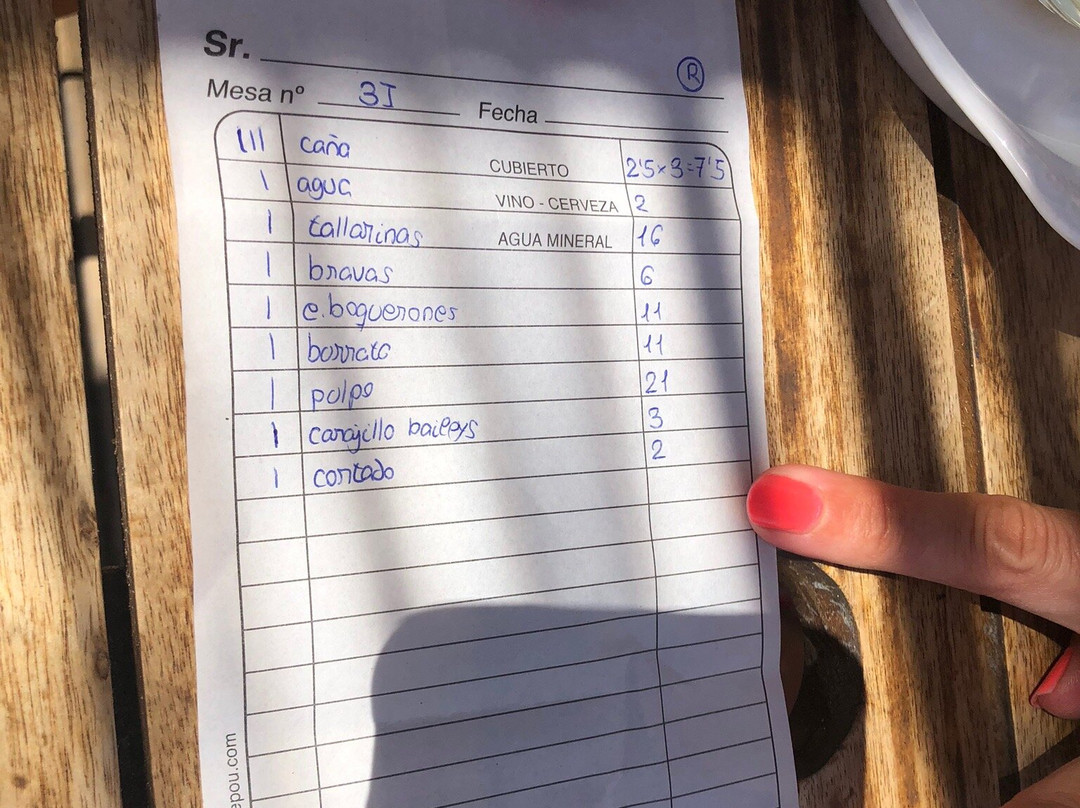 Sr.
R
Mesa nº 3I Fecha
III caña CUBIERTO 2'5x3=7'5
I agua VINO - CERVEZA 2
I tallarinas AGUA MINERAL 16
I bravas 6
I e.boquerones 11
I borrata 11
I polpo 21
I carajillo baileys 3
I cortado 2
epou.com